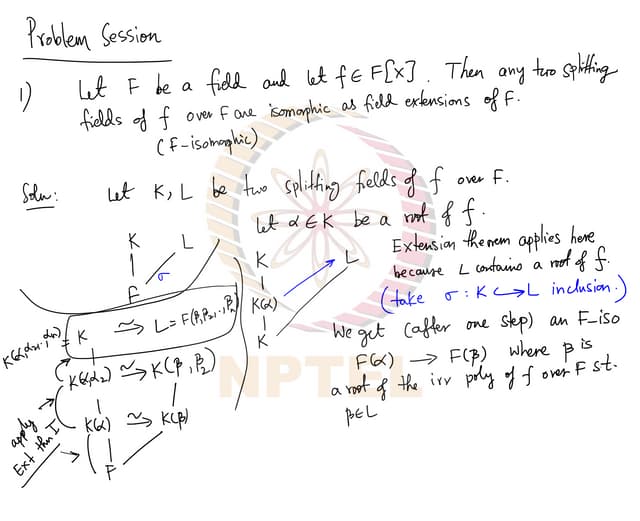 Problem Session
1) Let F be a field and let f ∈ F[x]. Then any two splitting
fields of f over F are isomorphic as field extensions of F.
(F-isomorphic)
Soln: Let K, L be two splitting fields of f over F.
Let α ∈ K be a root of f.
K L
F σ
K L
K(α)
K
Extension theorem applies here
because L contains a root of f.
(take σ: K ↪ L inclusion.)
We get (after one step) an F-iso
F(α) → F(β) where β is
a root of the irr poly of f over F st.
β ∈ L
= K ≃ L = F(β, β₂, .., β₂)
K(α, α₂) ≃ K(β, β₂)
K(α) ≃ K(β)
F
apply
Ext thm I
NPTEL